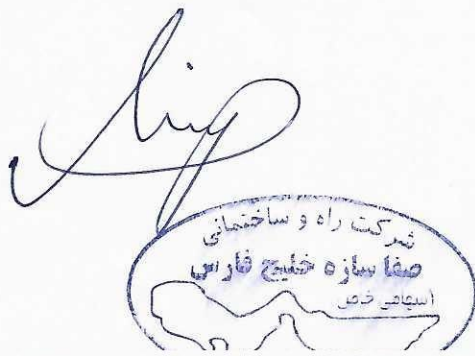 شرکت راه و ساختمانی
صفا سازه خلیج فارس
(سهامی خاص